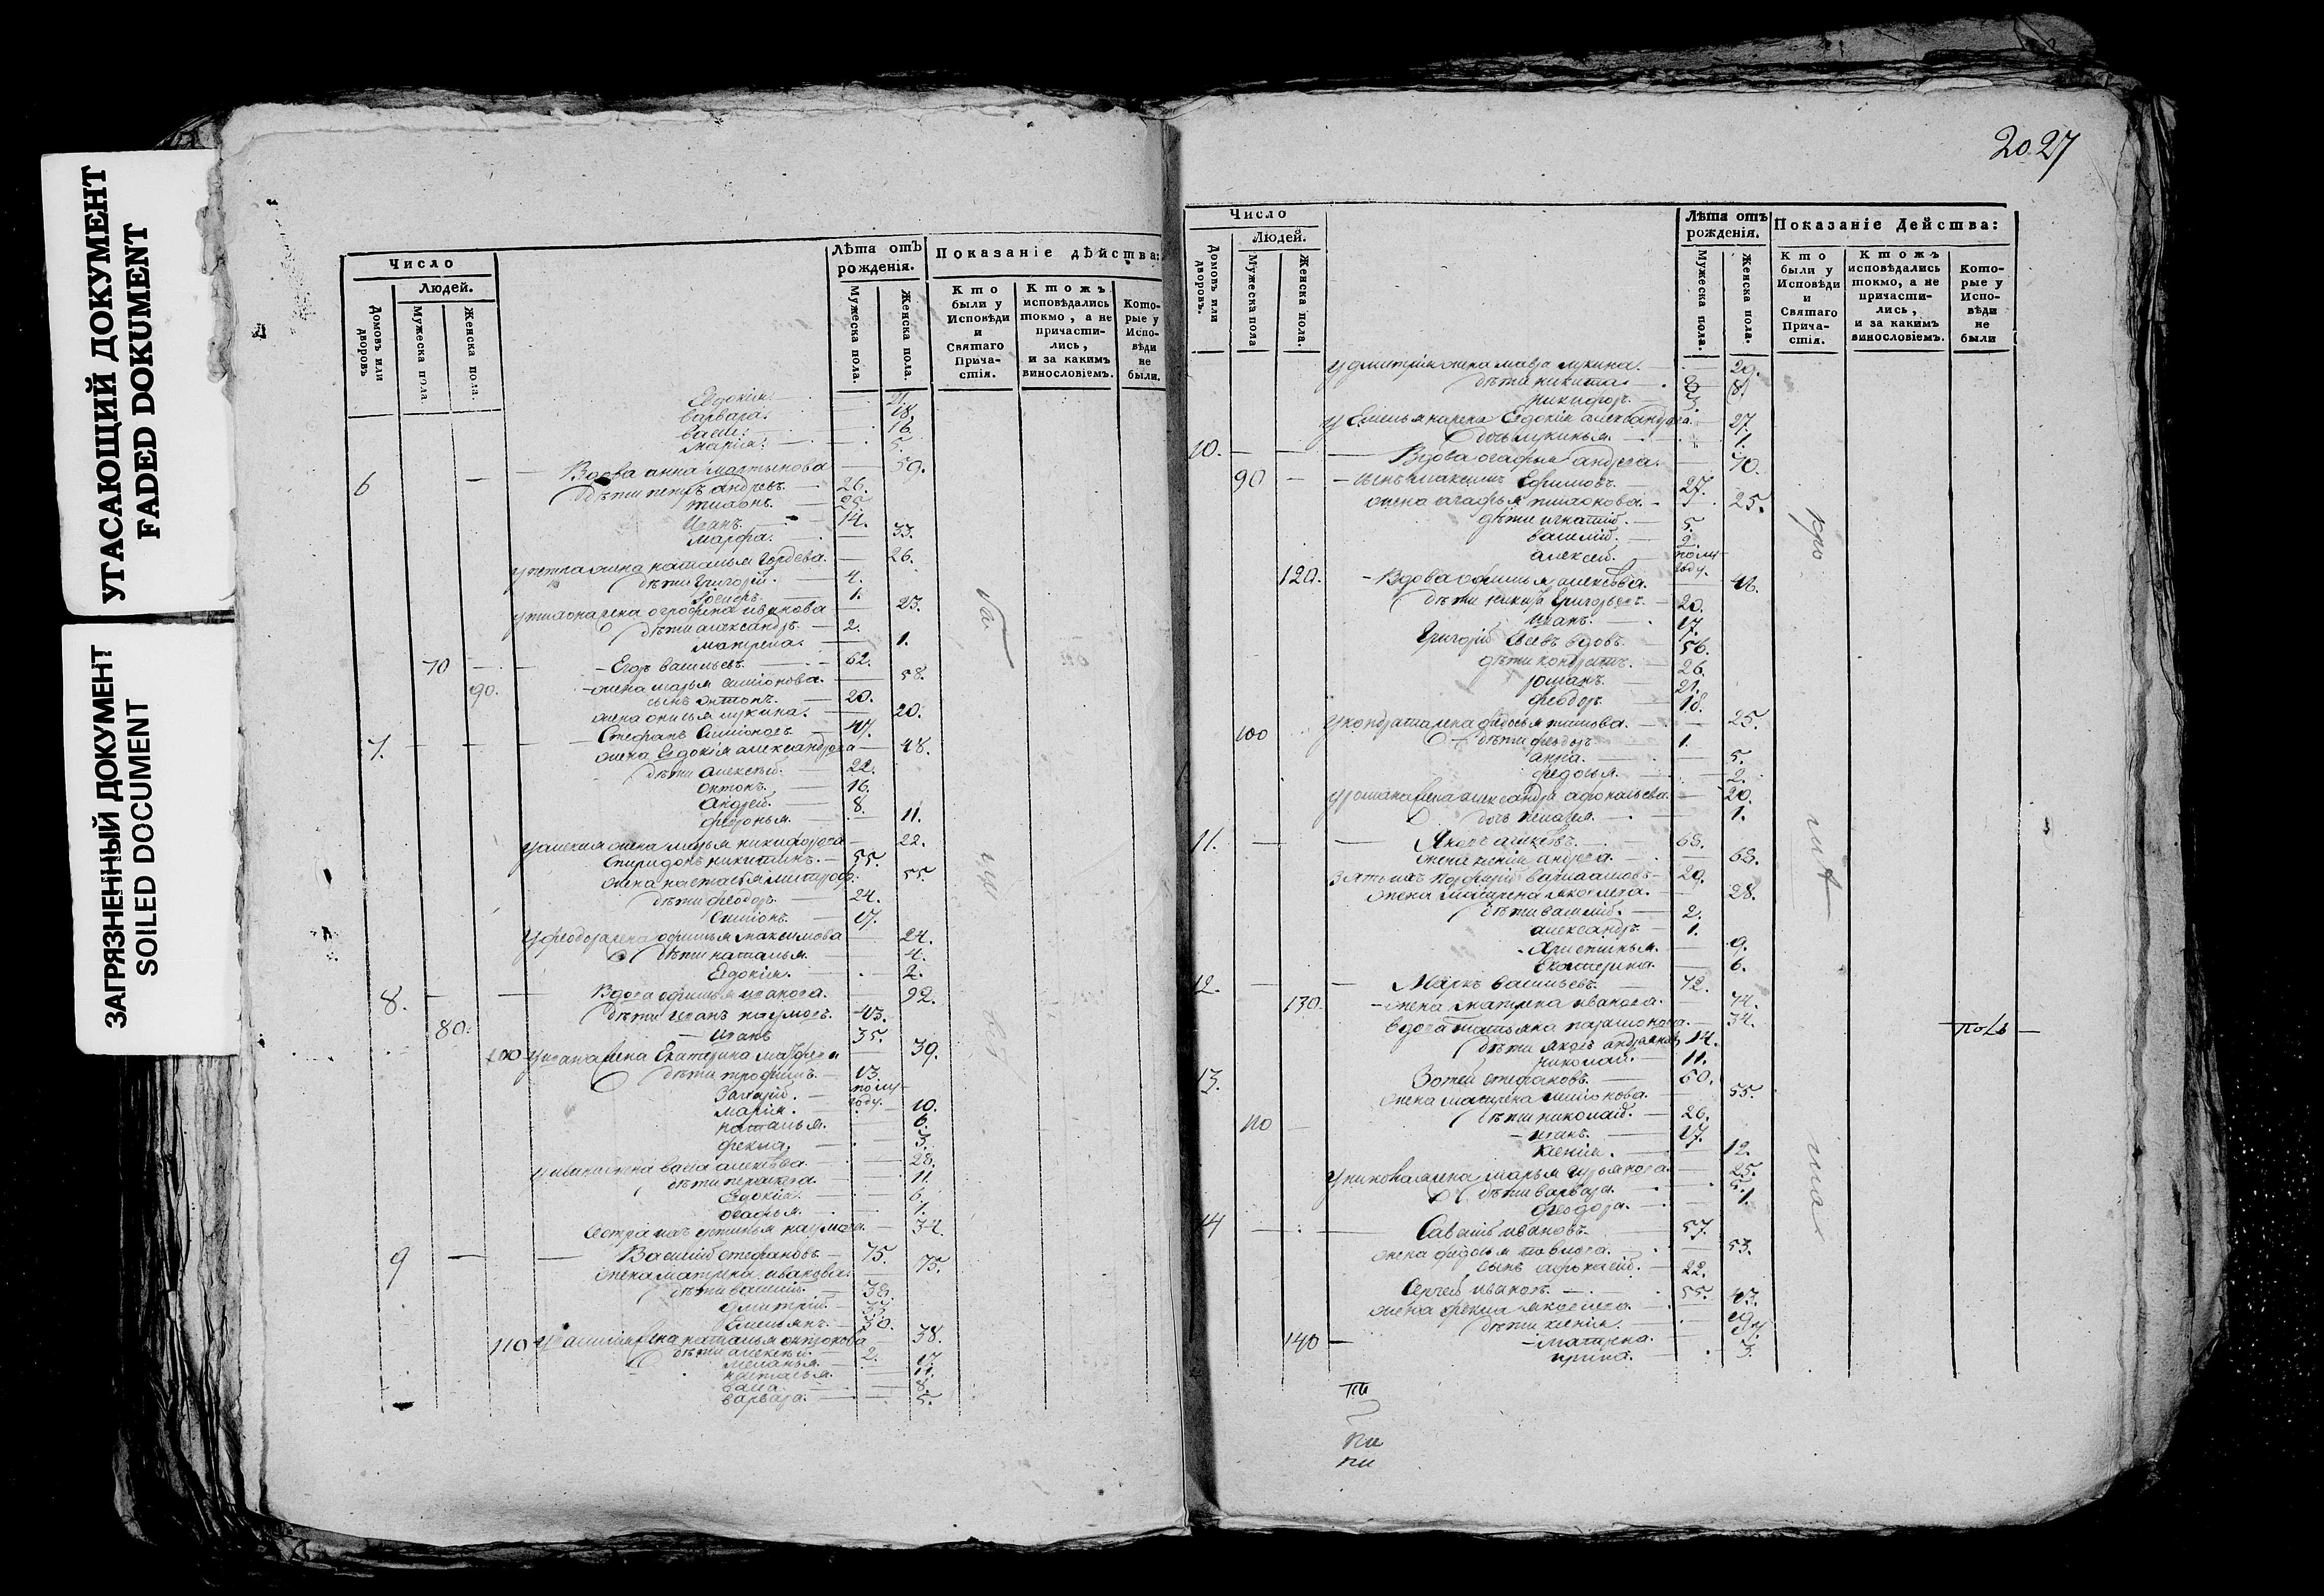 УГАСАЮЩИЙ ДОКУМЕНТ
FADED DOKUMENT
ЗАГРЯЗНЕННЫЙ ДОКУМЕНТ
SOILED DOCUMENT
Число
Людей.
Домовъ или дворовъ
Мужеска пола.
Женска пола.
Лѣта отъ рожденія.
Мужеска пола.
Женска пола.
Показаніе дѣйства:
Кто были у Исповѣди и Святаго Прича-стія.
Ктожъ исповѣдались токмо, а не причасти-лись, и за какимъ винословіемъ.
Кото-рые у Испо-вѣди не были.
Евдокія. 21.
варвара. 18.
васса. 16.
марія. 5.
6 Вдова анна мартынова 59.
дѣти петръ андреевъ. 26.
Иванъ. 14.
марфа. 33.
у петра жена наталья гордѣева. 26.
дѣти григорій. 4.
1.
жена огрофена иванова 23.
дѣти александръ. 2.
матрена. 1.
70 Егоръ васильевъ. 62.
90. жена марья симіонова. 58.
сынъ онтонъ. 20.
жена онисья лукина. 20.
7. Стефанъ Симіоновъ 47.
жена Евдокія александрова 48.
дѣти алексѣй. 22.
онтонъ. 16.
Андрей. 8.
февронья. 11.
у алексѣя жена марья никифорова 22.
Спиридонъ никитинъ. 55.
жена настасья митроф: 55.
дѣти феодоръ. 24.
Симіонъ. 17.
у феодора жена офимья максимова 24.
дѣти наталья. 4.
Евдокія. 2.
8. Вдова офимья иванова. 92.
дѣти Иванъ наумовъ. 43.
80. Иванъ 35.
100 у ивана жена Екатерина матфеева 39.
дѣти трофимъ. 13.
полу-году.
марія. 10.
наталья. 6.
фекла. 3.
у ивана жена васса алексѣева 28.
дѣти перасковья. 11.
Евдокія. 6.
огафья. 1.
Сестра ихъ устинья наумова. 34.
9 Василій стефановъ 75.
жена матрена иванова. 75.
дѣти василій. 38.
Дмитрій. 33.
Емельянъ. 30.
110 у василія жена наталья онтонова 38.
дѣти алексѣй. 2.
меланья. 17.
настасья. 11.
васса. 8.
варвара. 5.
2027
Число
Людей.
Домовъ или дворовъ.
Мужеска пола
Женска пола.
Лѣта отъ рожденія.
Мужеска пола.
Женска пола.
Показаніе Действа:
Кто были у Исповѣди и Святаго Прича-стія.
Ктожъ исповѣдались токмо, а не причасти-лись, и за какимъ винословіемъ.
Кото-рые у Испо-вѣди не были
у дмитрія жена мавра лукина. 29.
дѣти никита. 8.
никифоръ. 3.
у Емельяна жена Евдокія александрова. 27.
дочь лукинья. 1.
10. Вдова огафья андреева. 70.
90 сынъ максимъ Ефимовъ. 27.
жена агафья 25.
дѣти игнатій. 5.
василій. 2.
алексѣй. полу-году.
120. Вдова офимья алексѣева. 46.
дѣти никита Григорьевъ. 20.
Иванъ. 17.
Григорій вдовъ. 56.
дѣти кондратій. 26.
романъ. 21.
феодоръ 18.
у кондратія жена федосья титова. 25.
100 дѣти феодоръ 1.
анна. 5.
федосья. 2.
у романа жена александра афонасьева. 20.
дочь пелагея. 1.
11. Яковъ алексѣевъ. 68.
жена ксенія андреева. 68.
зять ихъ порфирій 29.
жена матрена яковлева. 28.
дѣти василій. 2.
александръ 1.
Христинья. 9.
Екатерина. 6.
12. Маркъ васильевъ. 72.
130. жена матрена иванова. 74.
вдова татьяна парамонова. 34.
дѣти яковъ андреяновъ 14.
николай. 11.
13. Зотей стефановъ. 60.
жена матрена симіонова. 55.
дѣти николай. 26.
110 иванъ. 17.
ксенія. 12.
у николая жена марья гурьянова. 25.
дѣти варвара. 5.
феодора. 1.
14 Савелій ивановъ. 57.
жена федосья павлова. 53.
сынъ афонасій. 22.
Сергей ивановъ. 55.
жена фекла яковлева. 43.
дѣти ксенія. 19.
140 матрена.
ирина. 3.